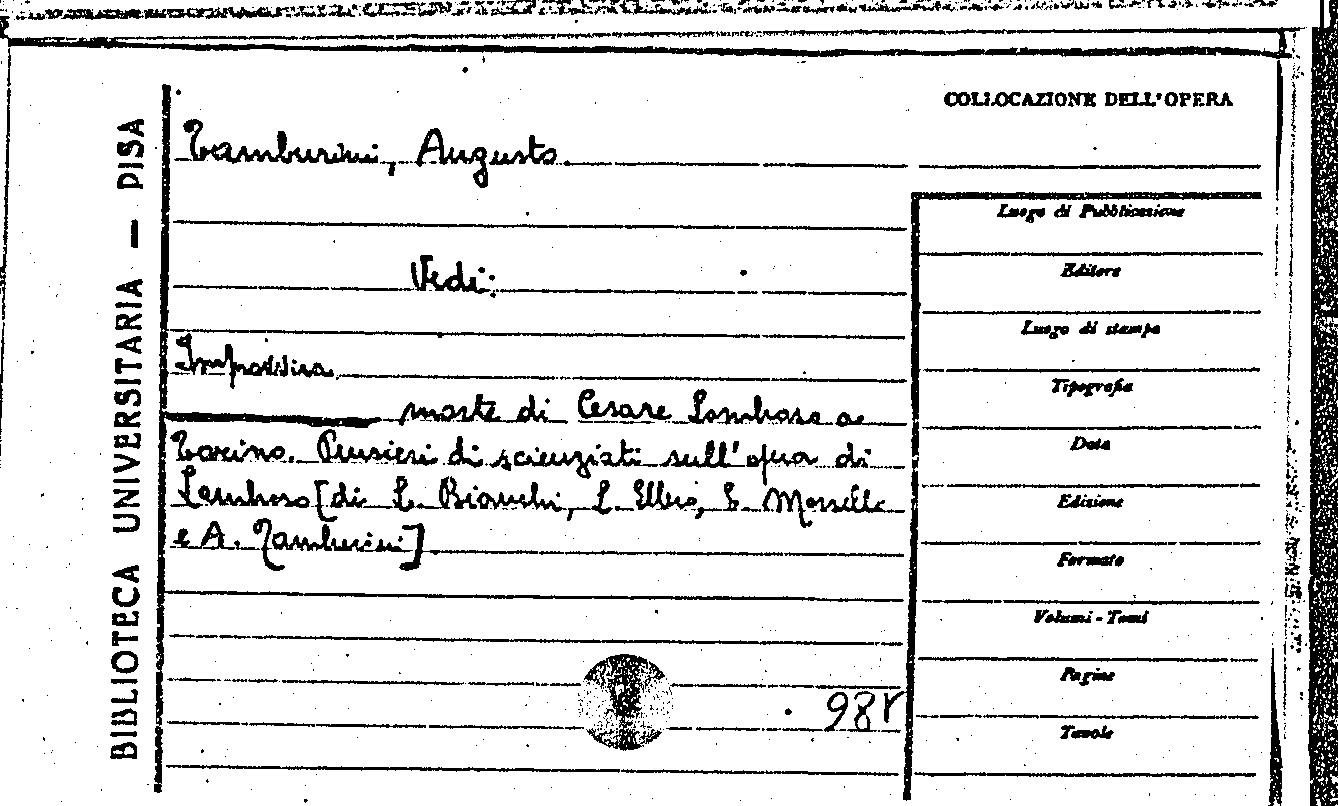 BIBLIOTECA UNIVERSITARIA — PISA
COLLOCAZIONE DELL'OPERA
Tamburini, Augusto.
Vedi:
Improvvisa
morte di Cesare Lombroso a
Torino. Pensieri di scienziati sull'opera di
Lombroso [di L. Bianchi, L. Ellero, E. Morselli
e A. Tamburini]
98r
Luogo di Pubblicazione
Editore
Luogo di stampa
Tipografia
Data
Edizione
Formato
Volumi - Tomi
Pagine
Tavole